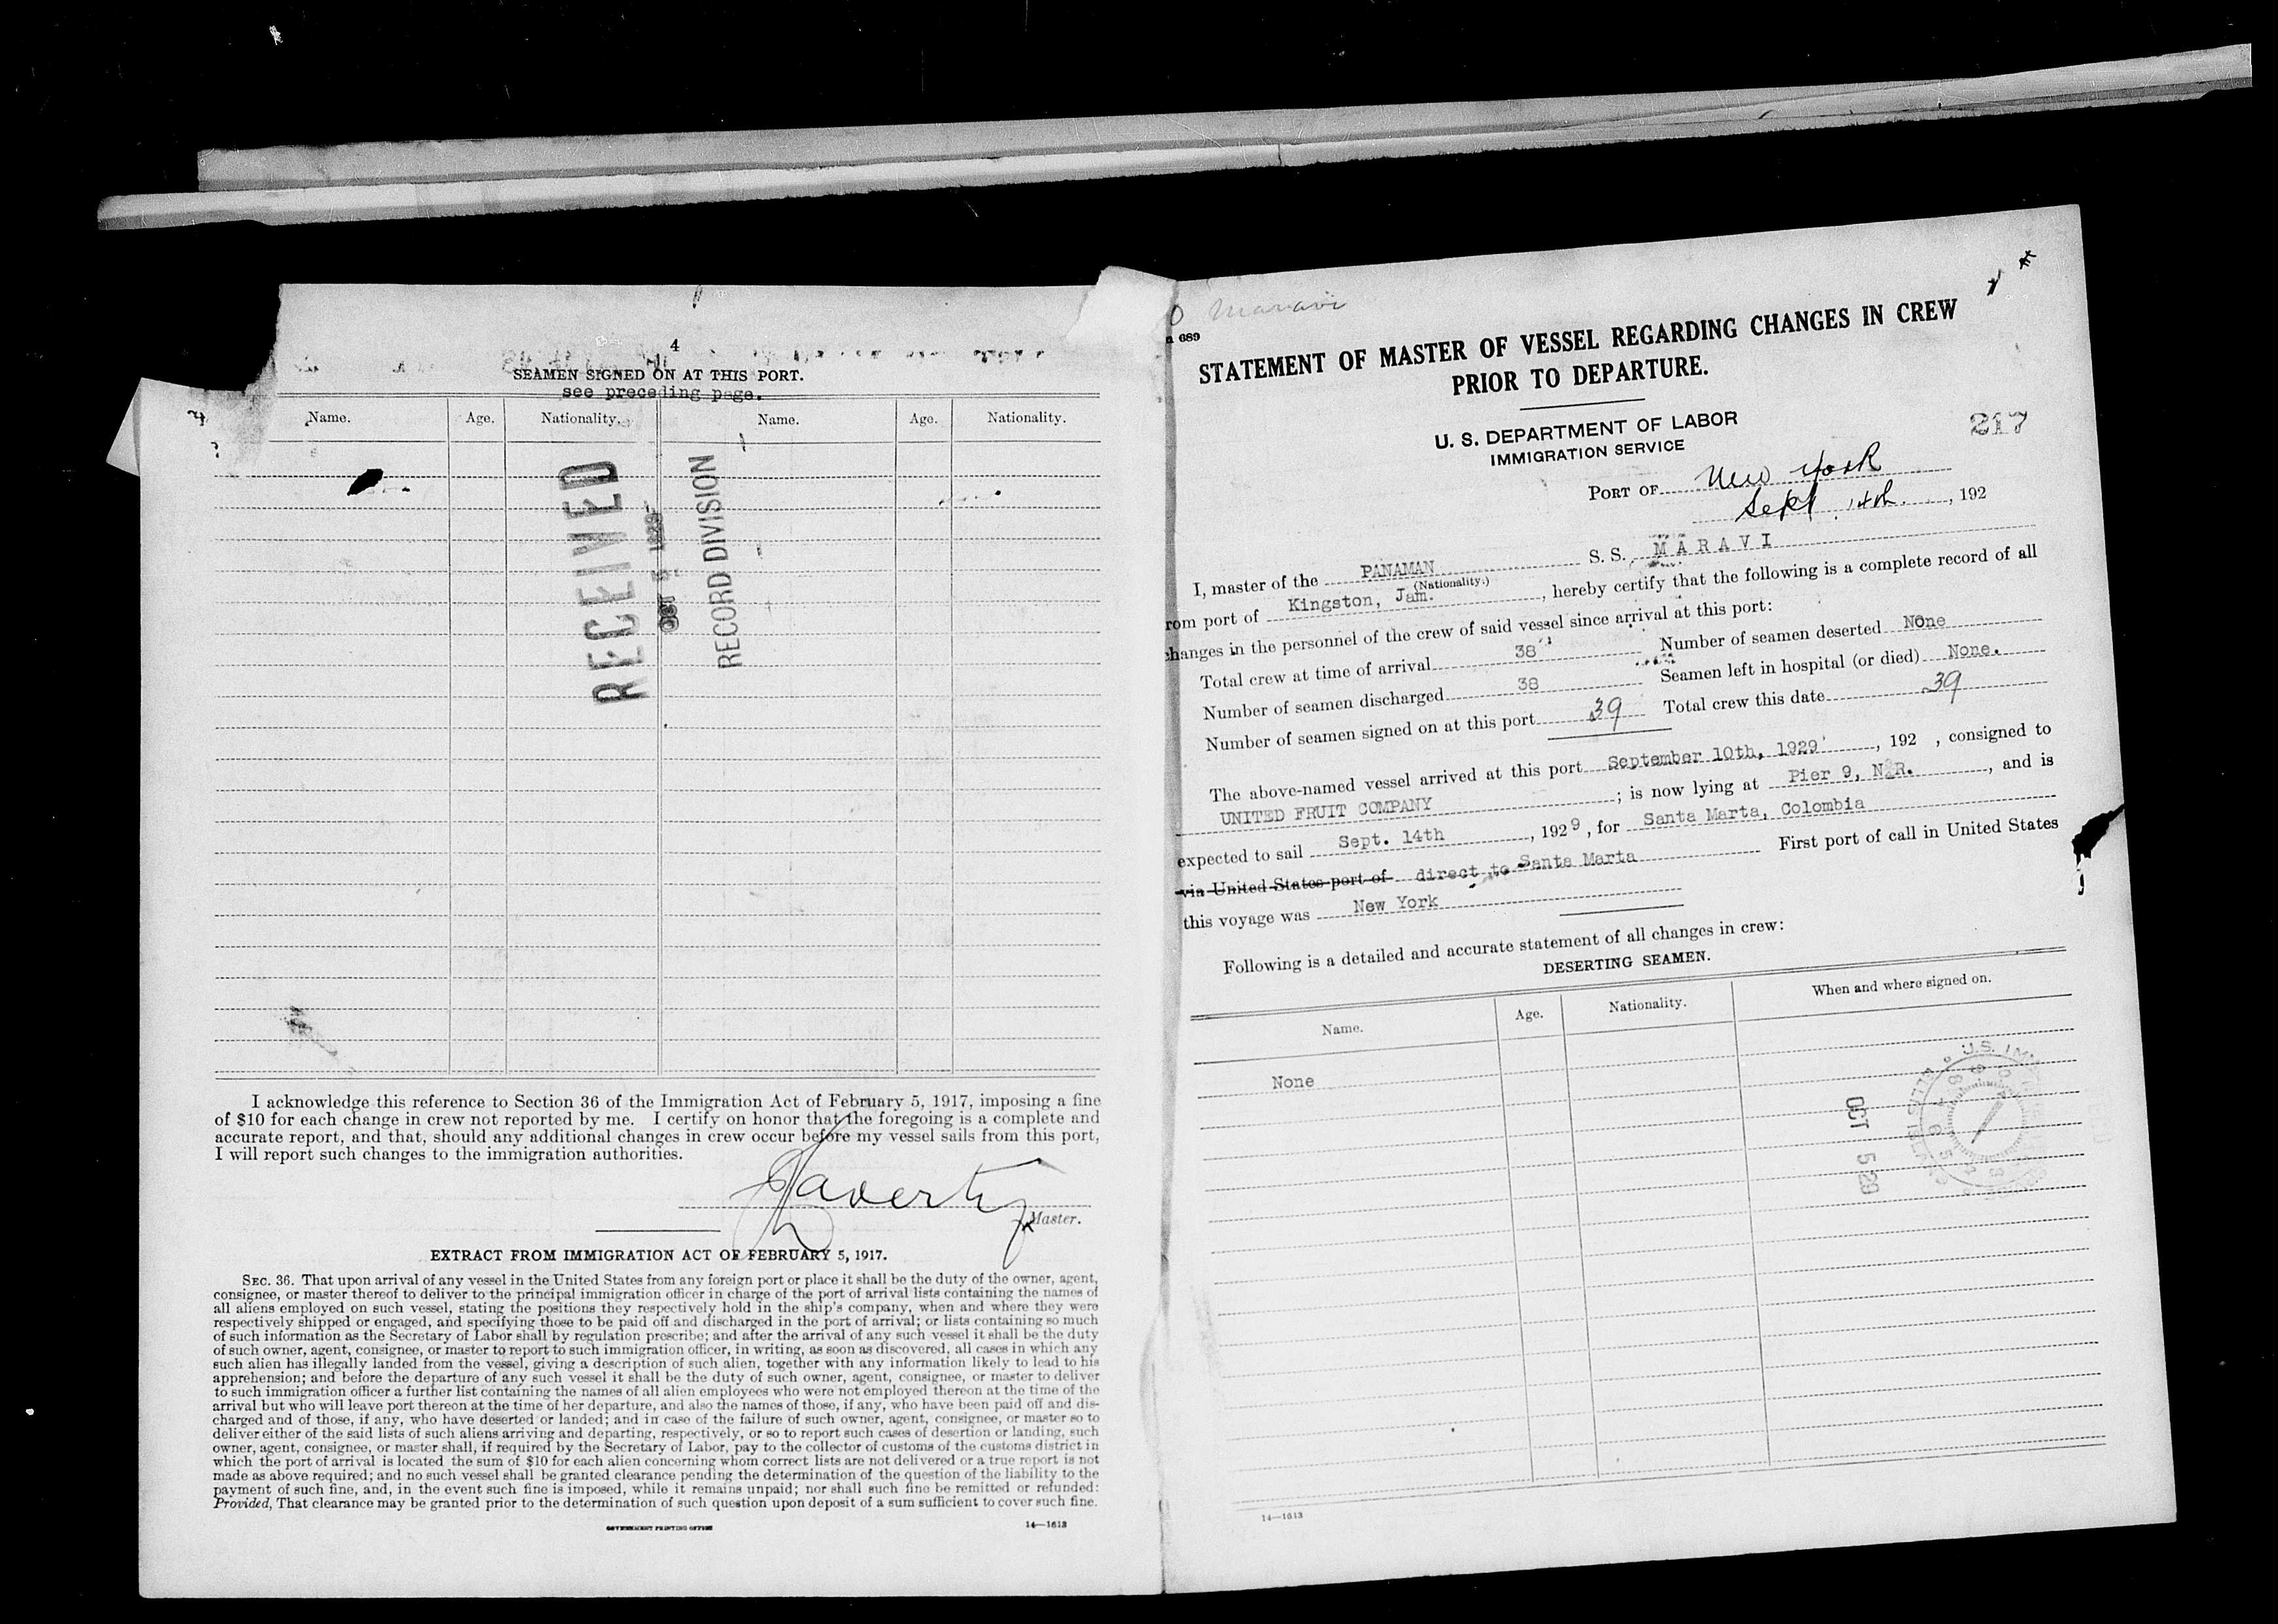 4
SEAMEN SIGNED ON AT THIS PORT.
see preceding page.
Name. Age. Nationality. Name. Age. Nationality.
RECEIVED
OCT 5 1929
RECORD DIVISION
I acknowledge this reference to Section 36 of the Immigration Act of February 5, 1917, imposing a fine
of $10 for each change in crew not reported by me. I certify on honor that the foregoing is a complete and
accurate report, and that, should any additional changes in crew occur before my vessel sails from this port,
I will report such changes to the immigration authorities.
Master.
EXTRACT FROM IMMIGRATION ACT OF FEBRUARY 5, 1917.
SEC. 36. That upon arrival of any vessel in the United States from any foreign port or place it shall be the duty of the owner, agent,
consignee, or master thereof to deliver to the principal immigration officer in charge of the port of arrival lists containing the names of
all aliens employed on such vessel, stating the positions they respectively hold in the ship's company, when and where they were
respectively shipped or engaged, and specifying those to be paid off and discharged in the port of arrival; or lists containing so much
of such information as the Secretary of Labor shall by regulation prescribe; and after the arrival of any such vessel it shall be the duty
of such owner, agent, consignee, or master to report to such immigration officer, in writing, as soon as discovered, all cases in which any
such alien has illegally landed from the vessel, giving a description of such alien, together with any information likely to lead to his
apprehension; and before the departure of any such vessel it shall be the duty of such owner, agent, consignee, or master to deliver
to such immigration officer a further list containing the names of all alien employees who were not employed thereon at the time of the
arrival but who will leave port thereon at the time of her departure, and also the names of those, if any, who have been paid off and dis-
charged and of those, if any, who have deserted or landed; and in case of the failure of such owner, agent, consignee, or master so to
deliver either of the said lists of such aliens arriving and departing, respectively, or so to report such cases of desertion or landing, such
owner, agent, consignee, or master shall, if required by the Secretary of Labor, pay to the collector of customs of the customs district in
which the port of arrival is located the sum of $10 for each alien concerning whom correct lists are not delivered or a true report is not
made as above required; and no such vessel shall be granted clearance pending the determination of the question of the liability to the
payment of such fine, and, in the event such fine is imposed, while it remains unpaid; nor shall such fine be remitted or refunded:
Provided, That clearance may be granted prior to the determination of such question upon deposit of a sum sufficient to cover such fine.
GOVERNMENT PRINTING OFFICE 14—1613
Maravi
689
STATEMENT OF MASTER OF VESSEL REGARDING CHANGES IN CREW
PRIOR TO DEPARTURE.
U. S. DEPARTMENT OF LABOR
IMMIGRATION SERVICE
217
PORT OF New York
Sept 14th, 192
I, master of the PANAMAN S. S. MARAVI
(Nationality.)
rom port of Kingston, Jam., hereby certify that the following is a complete record of all
changes in the personnel of the crew of said vessel since arrival at this port:
Total crew at time of arrival 38 Number of seamen deserted None
Number of seamen discharged 38 Seamen left in hospital (or died) None.
Number of seamen signed on at this port 39 Total crew this date 39
The above-named vessel arrived at this port September 10th, 1929, 192 , consigned to
UNITED FRUIT COMPANY ; is now lying at Pier 9, N.R. , and is
expected to sail Sept. 14th, 1929, for Santa Marta, Colombia
via United States port of direct to Santa Marta First port of call in United States
this voyage was New York
Following is a detailed and accurate statement of all changes in crew:
DESERTING SEAMEN.
Name. Age. Nationality. When and where signed on.
None
OCT 5 29
14—1613